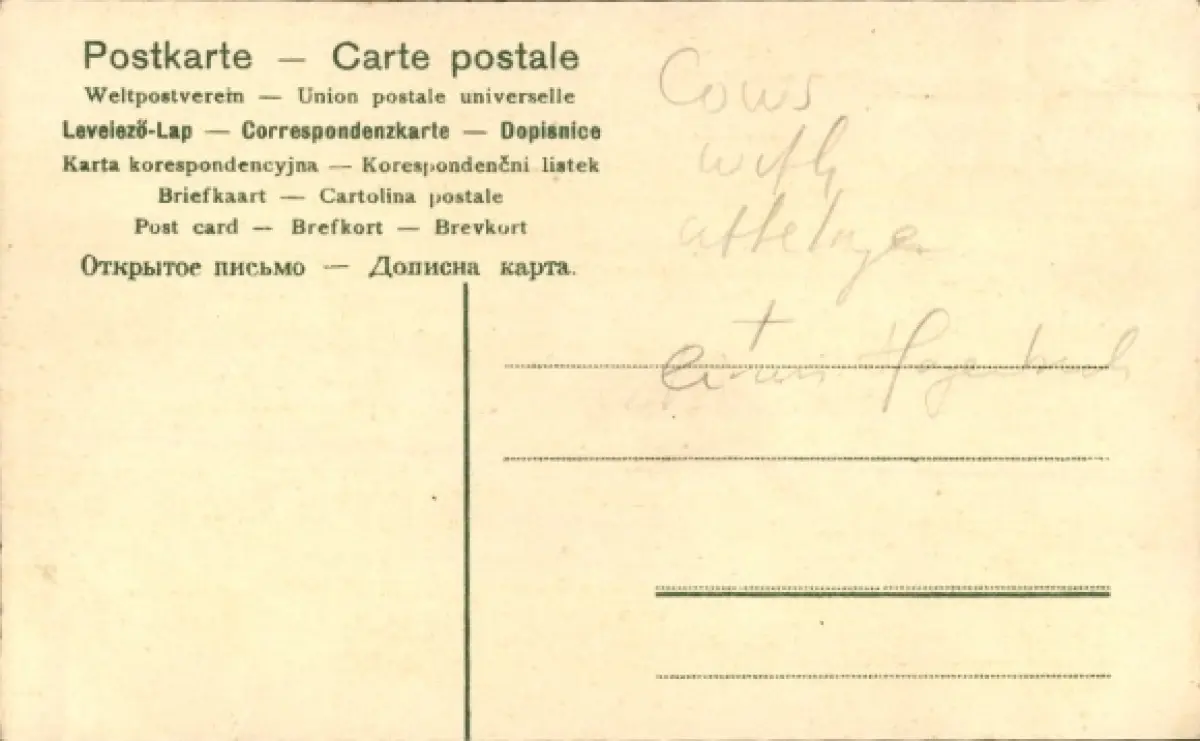 Postkarte — Carte postale
Weltpostverein — Union postale universelle
Levelező-Lap — Correspondenzkarte — Dopisnice
Karta korespondencyjna — Korespondenční listek
Briefkaart — Cartolina postale
Post card — Brefkort — Brevkort
Открытое письмо — Дописна карта.
Cows
with